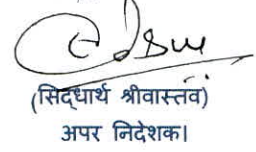 (सिद्धार्थ श्रीवास्तव)
अपर निदेशक।